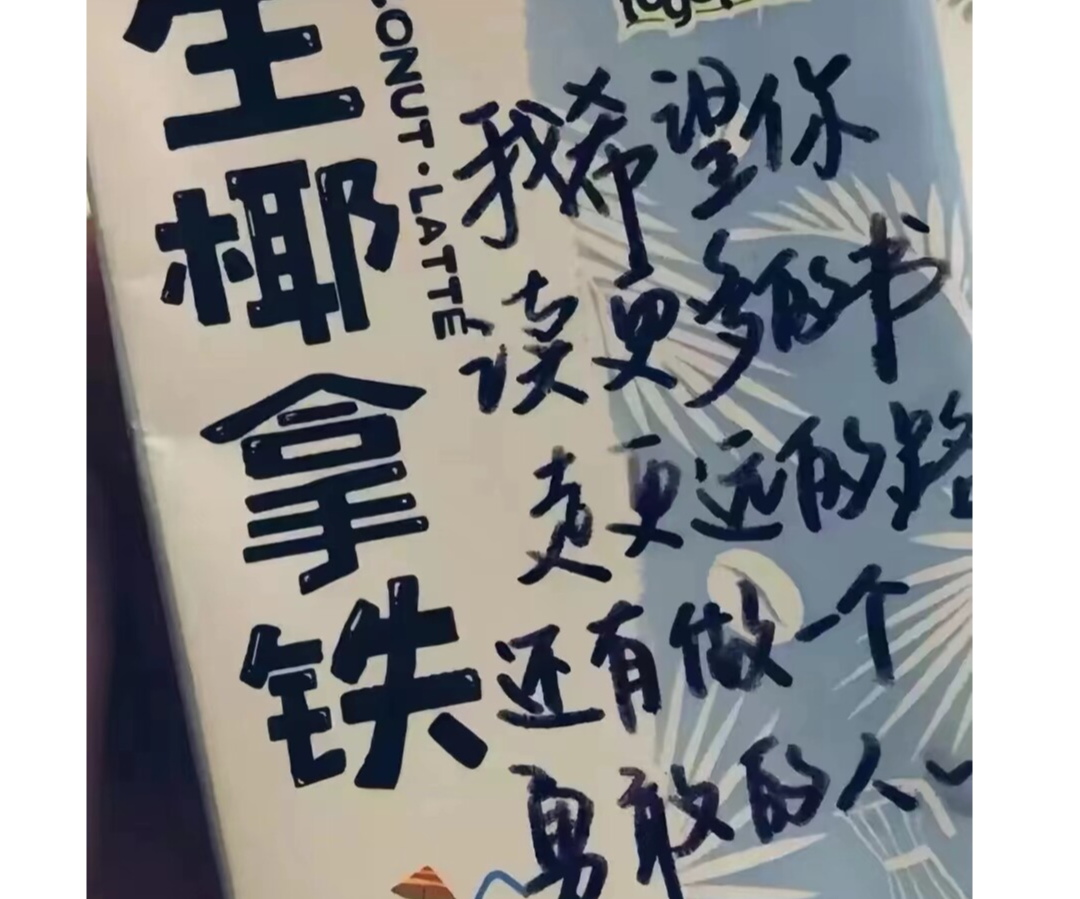 生椰拿铁
CONUT·LATTE
我希望你
读更多的书
走更远的路
还有做一个
勇敢的人~